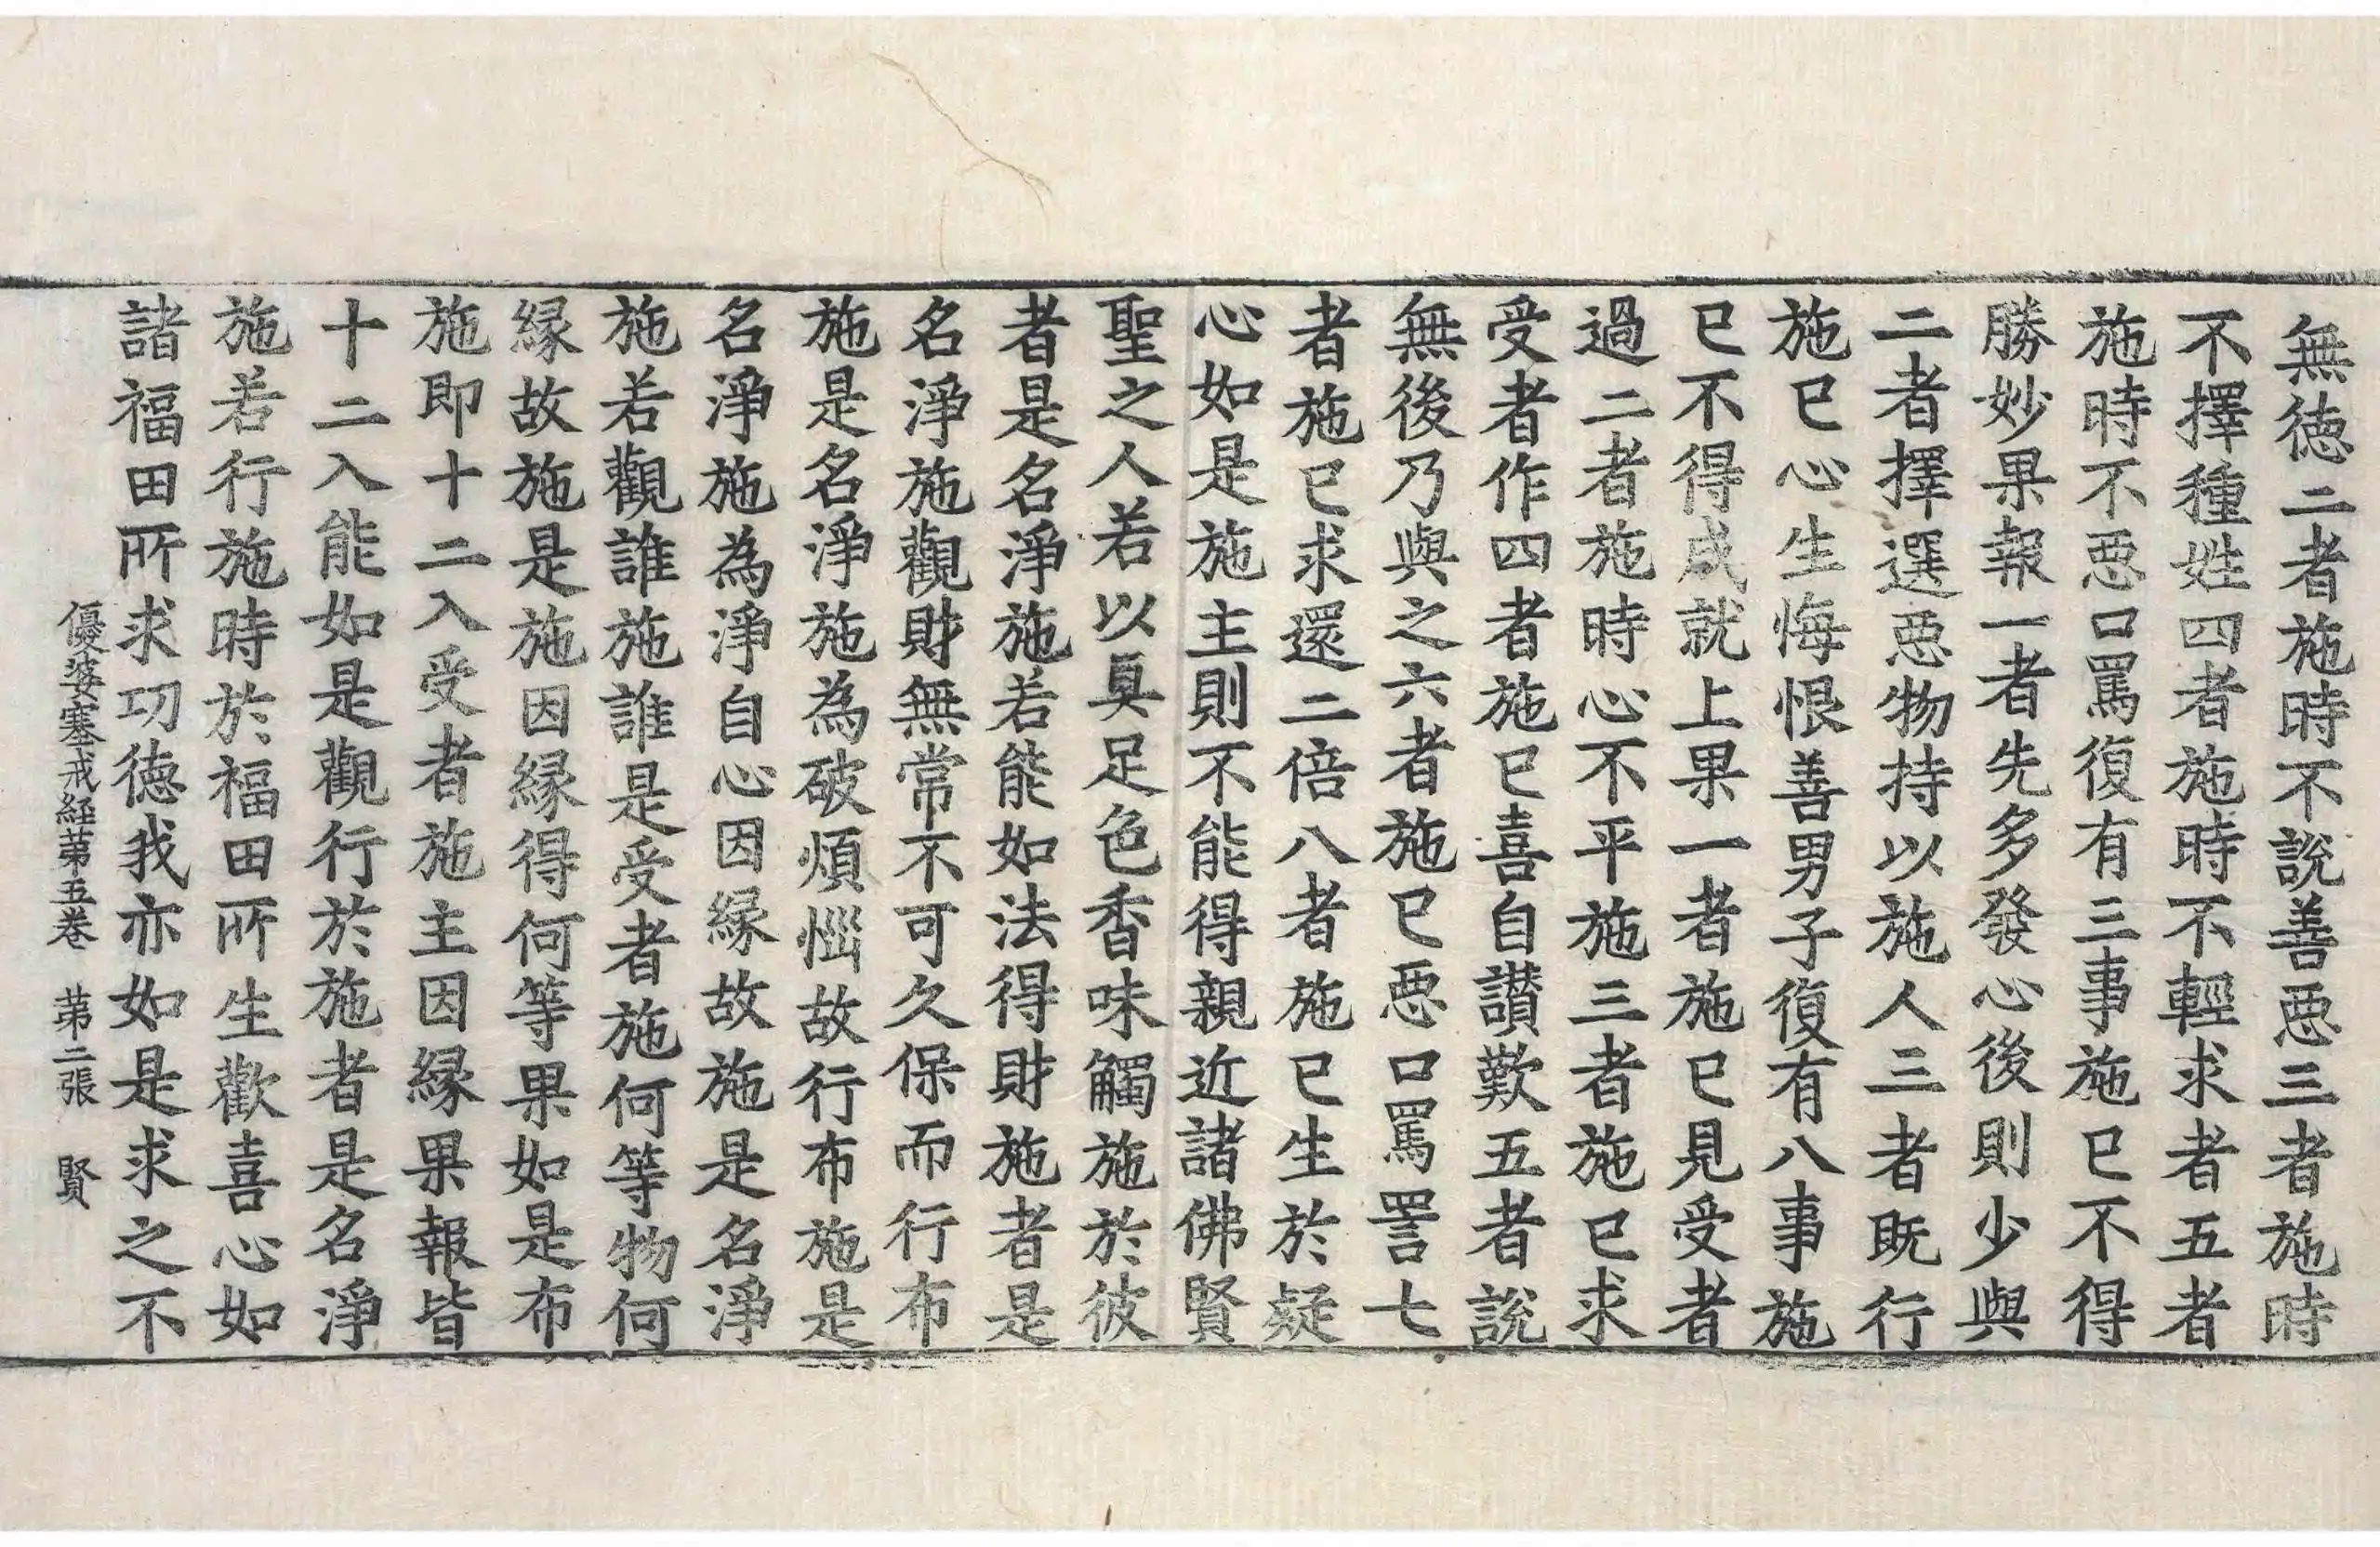 無徳二者施時不說善惡三者施時
不擇種姓四者施時不輕求者五者
施時不惡口罵復有三事施已不得
勝妙果報一者先多發心後則少與
二者擇選惡物持以施人三者既行
施已心生悔恨善男子復有八事施
已不得成就上果一者施已見受者
過二者施時心不平施三者施已求
受者作四者施已喜自讃歎五者說
無後乃與之六者施已惡口罵詈七
者施已求還二倍八者施已生於疑
心如是施主則不能得親近諸佛賢
聖之人若以具足色香味觸施於彼
者是名淨施若能如法得財施者是
名淨施觀財無常不可久保而行布
施是名淨施為破煩惱故行布施是
名淨施為淨自心因縁故施是名淨
施若觀誰施誰是受者施何等物何
縁故施是施因縁得何等果如是布
施即十二入受者施主因縁果報皆
十二入能如是觀行於施者是名淨
施若行施時於福田所生歡喜心如
諸福田所求功徳我亦如是求之不
優婆塞戒経第五巻 第二張 賢